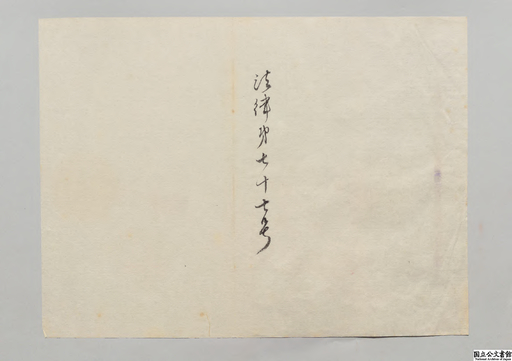 法律第七十七号
国立公文書館
National Archives of Japan